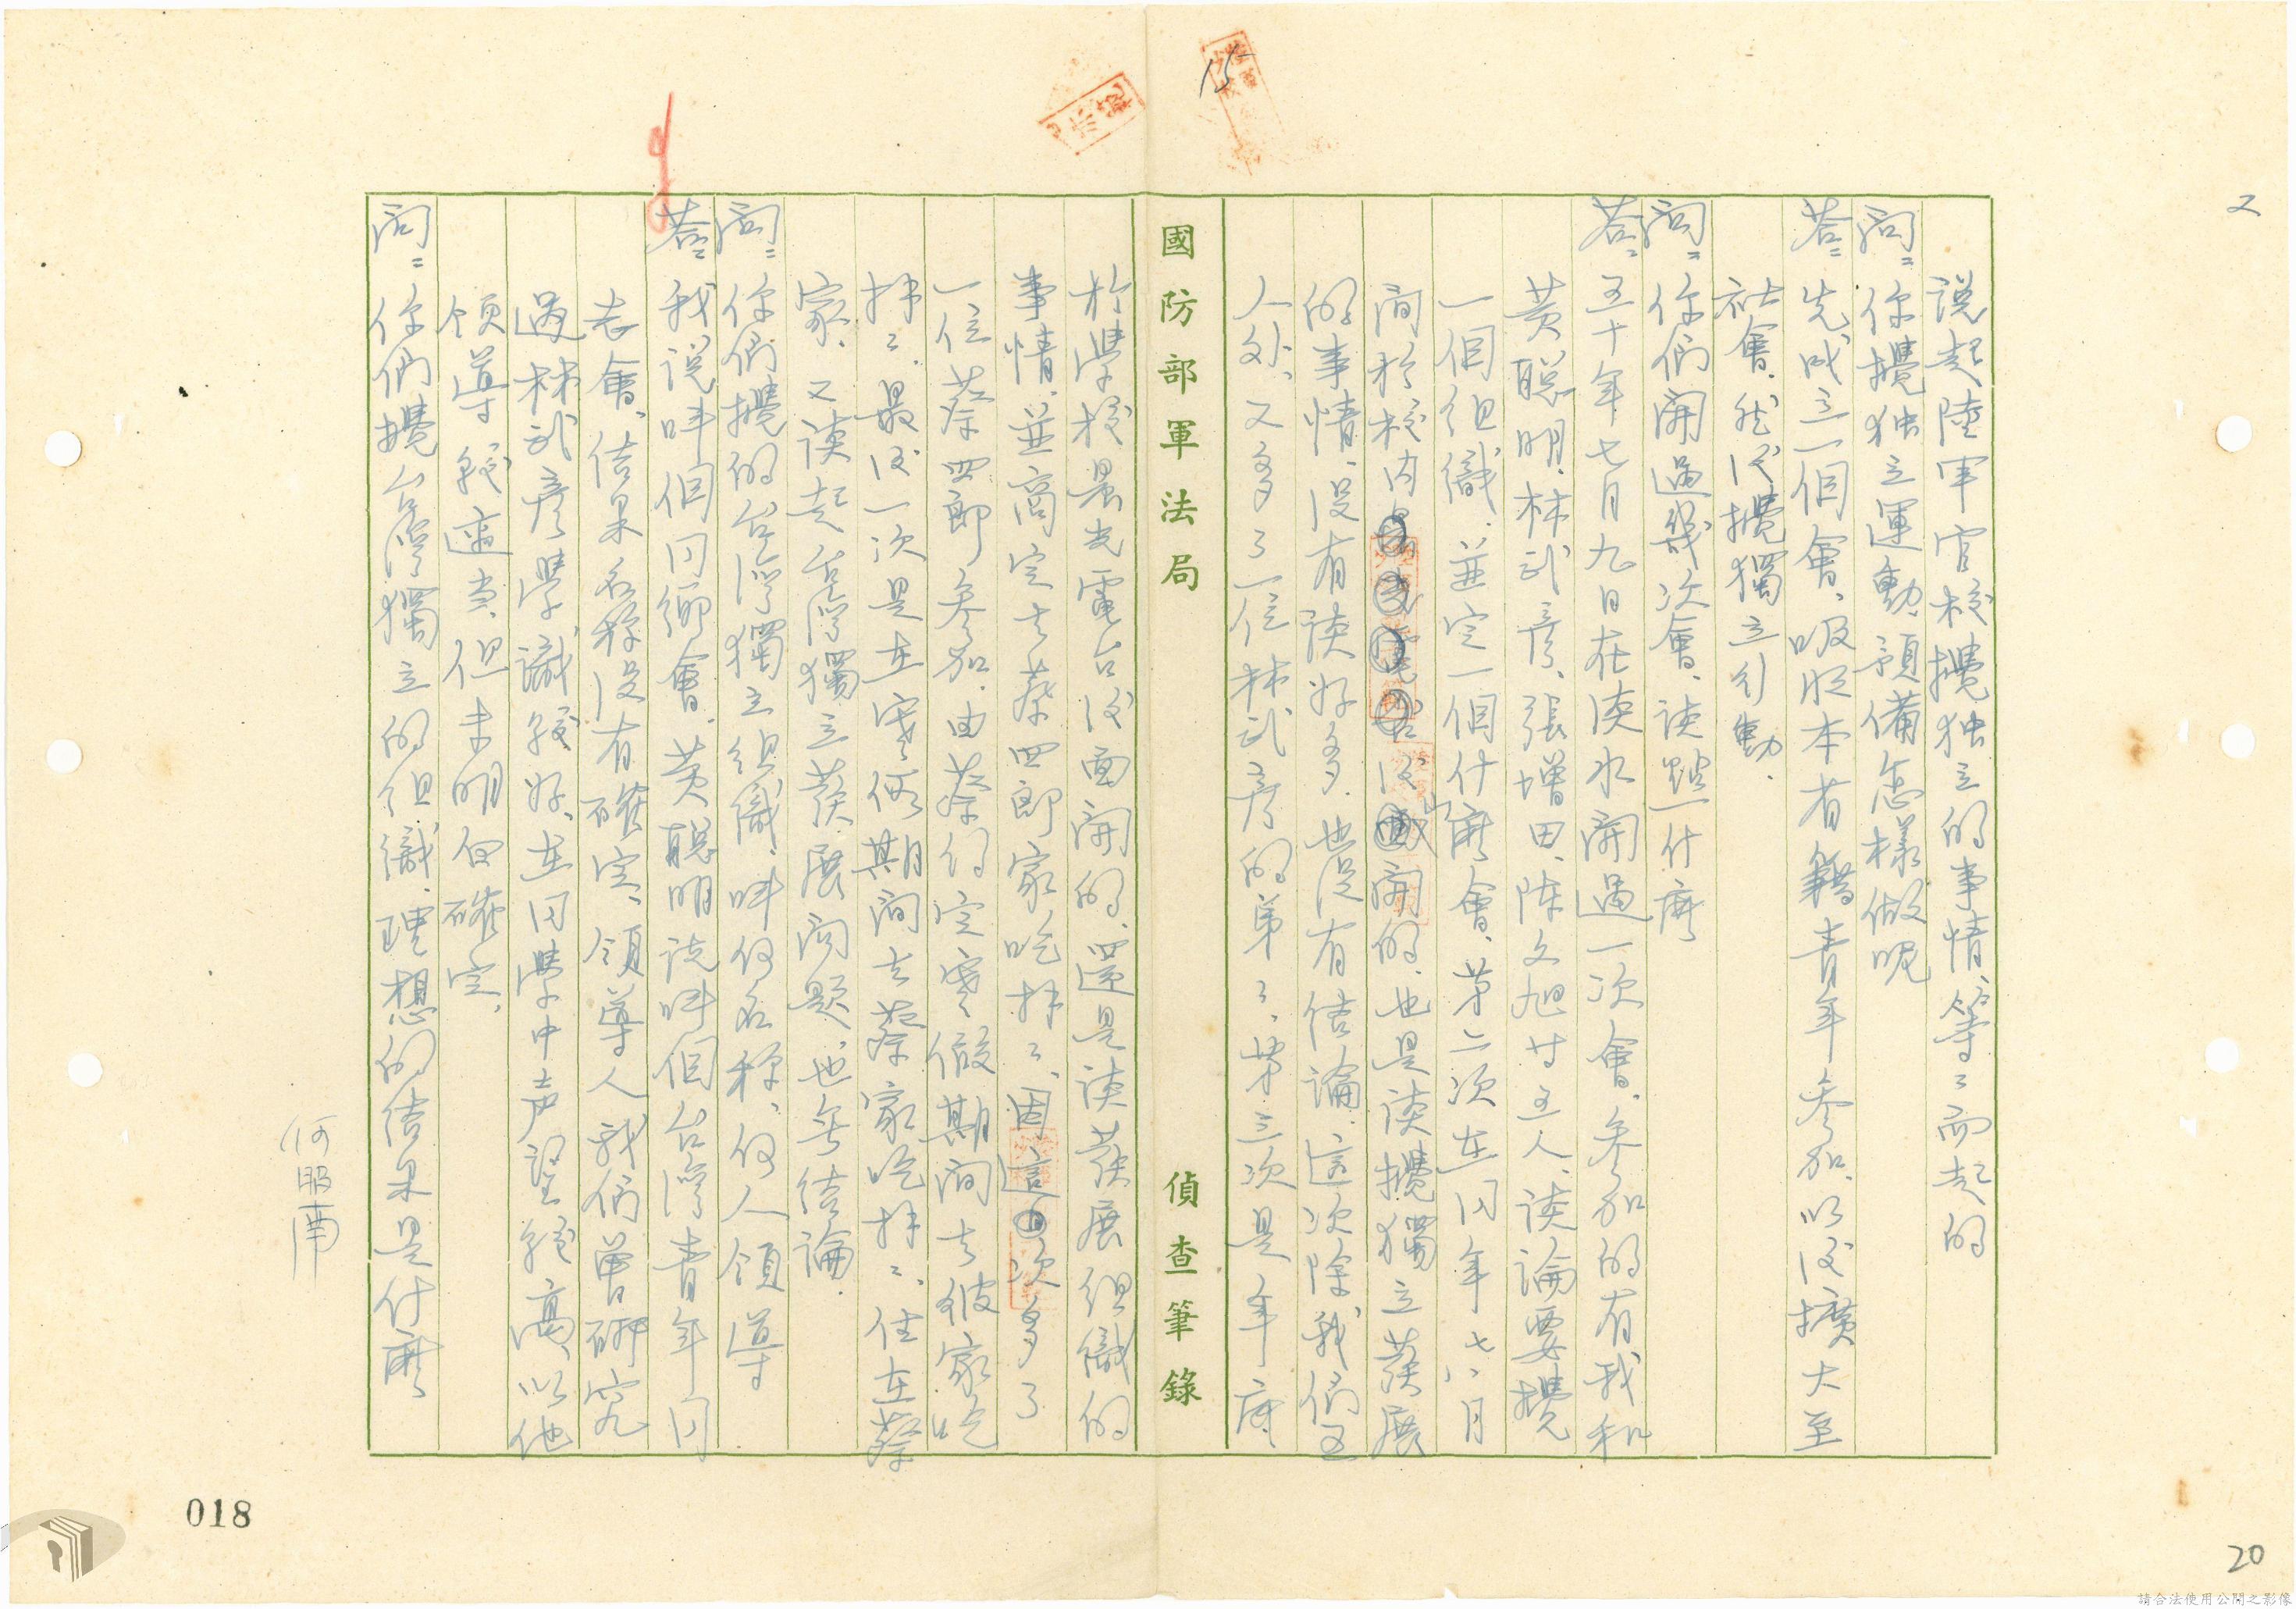 又
15
說起陸軍官校攪独立的事情、等々而起的
問:你攪独立運動、預備怎樣做呢
答:先成立一個會、吸收本省籍青年參加、以後擴大至
社會、然後攪獨立行動.
問:你們開過幾次會、談點什麼
答:五十年七月九日在淡水開過一次會、參加的有我和
黃聰明、林武彥、張增田、陈文旭廿五人、談論要攪
一個組織、並定一個什麼會、第二次在同年七八月
間於校內後面開的、也是談攪獨立發展
的事情、没有談好多、也没有结論、這次除我們五
人外、又多了一位林武彥的弟々、第三次是年底、
國防部軍法局 偵查筆錄
於學校晨光電台後面開的、還是談發展組織的
事情、並商定去蔡四郎家吃拜々、因這次多了
一位蔡四郎參加、由蔡約定寒假期間去彼家吃
拜々、最後一次是在寒假期間去蔡家吃拜々、住在蔡
家、又談起台灣獨立發展問題、也無结論.
問:你們攪的台灣獨立組織、叫何名称、何人領導
答:我說叫個同鄉會、黃聰明說叫個台灣青年同
志會、结果名称没有確定、領導人我們曾研究
過林武彥學識較好、在同學中声望較高、以他
領導較適当、但未明白確定.
問:你們攪台灣獨立的组織、理想的结果是什麼
何照南
018
20
請合法使用公開之影像